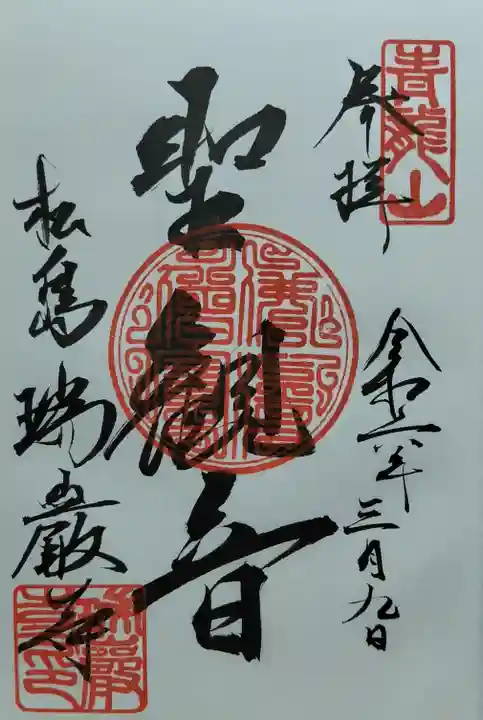 青龍山
奉拝
令和六年三月九日
聖観音
松島瑞巌寺